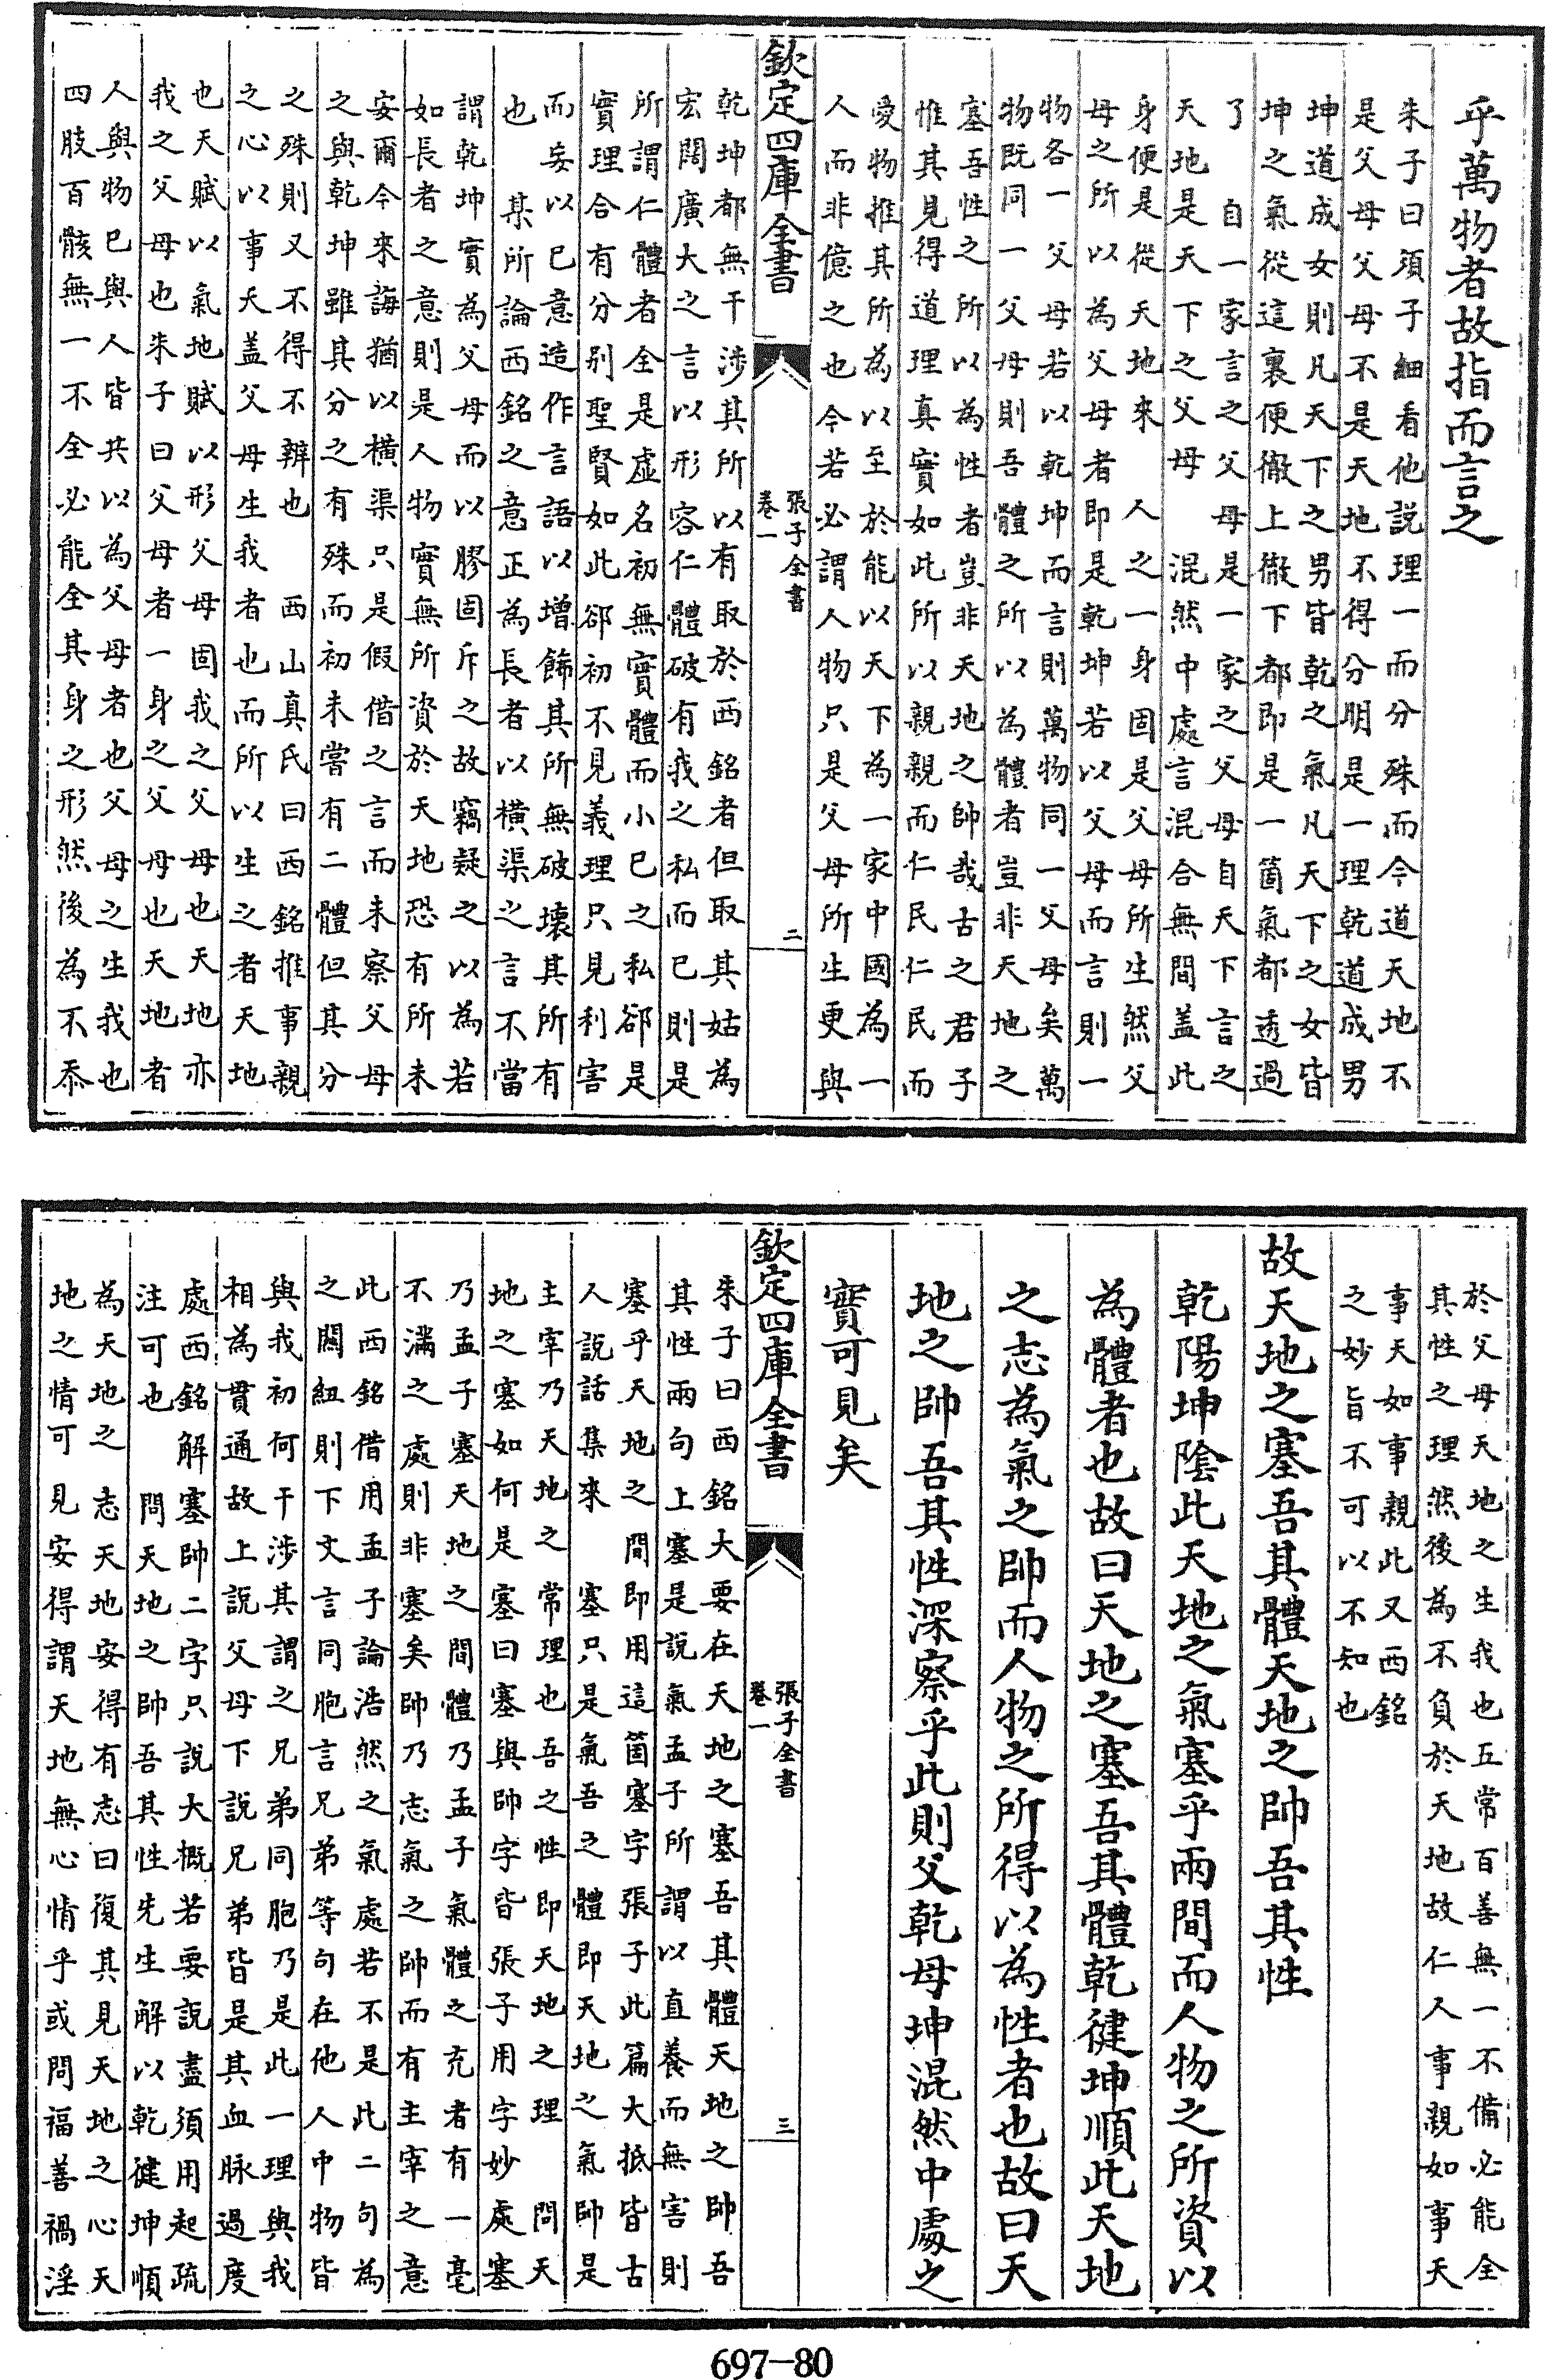 乎萬物者故指而言之
朱子曰須子細看他説理一而分殊而今道天地不
是父母父母不是天地不得分明是一理乾道成男
坤道成女則凡天下之男皆乾之氣凡天下之女皆
坤之氣從這裏便徹上徹下都即是一箇氣都透過
了　自一家言之父母是一家之父母自天下言之
天地是天下之父母　混然中處言混合無間盖此
身便是從天地來　人之一身固是父母所生然父
母之所以為父母者即是乾坤若以父母而言則一
物各一父母若以乾坤而言則萬物同一父母矣萬
物既同一父母則吾體之所以為體者豈非天地之
塞吾性之所以為性者豈非天地之帥哉古之君子
惟其見得道理真實如此所以親親而仁民仁民而
愛物推其所為以至於能以天下為一家中國為一
人而非億之也今若必謂人物只是父母所生更與
欽定四庫全書
張子全書
卷一
二
乾坤都無干涉其所以有取於西銘者但取其姑為
宏闊廣大之言以形容仁體破有我之私而已則是
所謂仁體者全是虛名初無實體而小已之私郤是
實理合有分别聖賢如此郤初不見義理只見利害
而妄以已意造作言語以增飾其所無破壞其所有
也　某所論西銘之意正為長者以橫渠之言不當
謂乾坤實為父母而以膠固斥之故竊疑之以為若
如長者之意則是人物實無所資於天地恐有所未
安爾今來誨猶以橫渠只是假借之言而未察父母
之與乾坤雖其分之有殊而初未嘗有二體但其分
之殊則又不得不辨也　西山真氏曰西銘推事親
之心以事天盖父母生我者也而所以生之者天地
也天賦以氣地賦以形父母固我之父母也天地亦
我之父母也朱子曰父母者一身之父母也天地者
人與物已與人皆共以為父母者也父母之生我也
四肢百骸無一不全必能全其身之形然後為不忝
於父母天地之生我也五常百善無一不備必能全
其性之理然後為不負於天地故仁人事親如事天
事天如事親此又西銘
之妙旨不可以不知也
故天地之塞吾其體天地之帥吾其性
乾陽坤陰此天地之氣塞乎兩間而人物之所資以
為體者也故曰天地之塞吾其體乾健坤順此天地
之志為氣之帥而人物之所得以為性者也故曰天
地之帥吾其性深察乎此則父乾母坤混然中處之
實可見矣
欽定四庫全書
張子全書
卷一
三
朱子曰西銘大要在天地之塞吾其體天地之帥吾
其性兩句上塞是説氣孟子所謂以直養而無害則
塞乎天地之間即用這箇塞字張子此篇大抵皆古
人説話集來　塞只是氣吾之體即天地之氣帥是
主宰乃天地之常理也吾之性即天地之理　問天
地之塞如何是塞曰塞與帥字皆張子用字妙處塞
乃孟子塞天地之間體乃孟子氣體之充者有一毫
不滿之處則非塞矣帥乃志氣之帥而有主宰之意
此西銘借用孟子論浩然之氣處若不是此二句為
之關紐則下文言同胞言兄弟等句在他人中物皆
與我初何干涉其謂之兄弟同胞乃是此一理與我
相為貫通故上説父母下説兄弟皆是其血脉過度
處西銘解塞帥二字只説大概若要説盡須用起疏
注可也　問天地之帥吾其性先生解以乾健坤順
為天地之志天地安得有志曰復其見天地之心天
地之情可見安得謂天地無心情乎或問福善禍淫
697—80